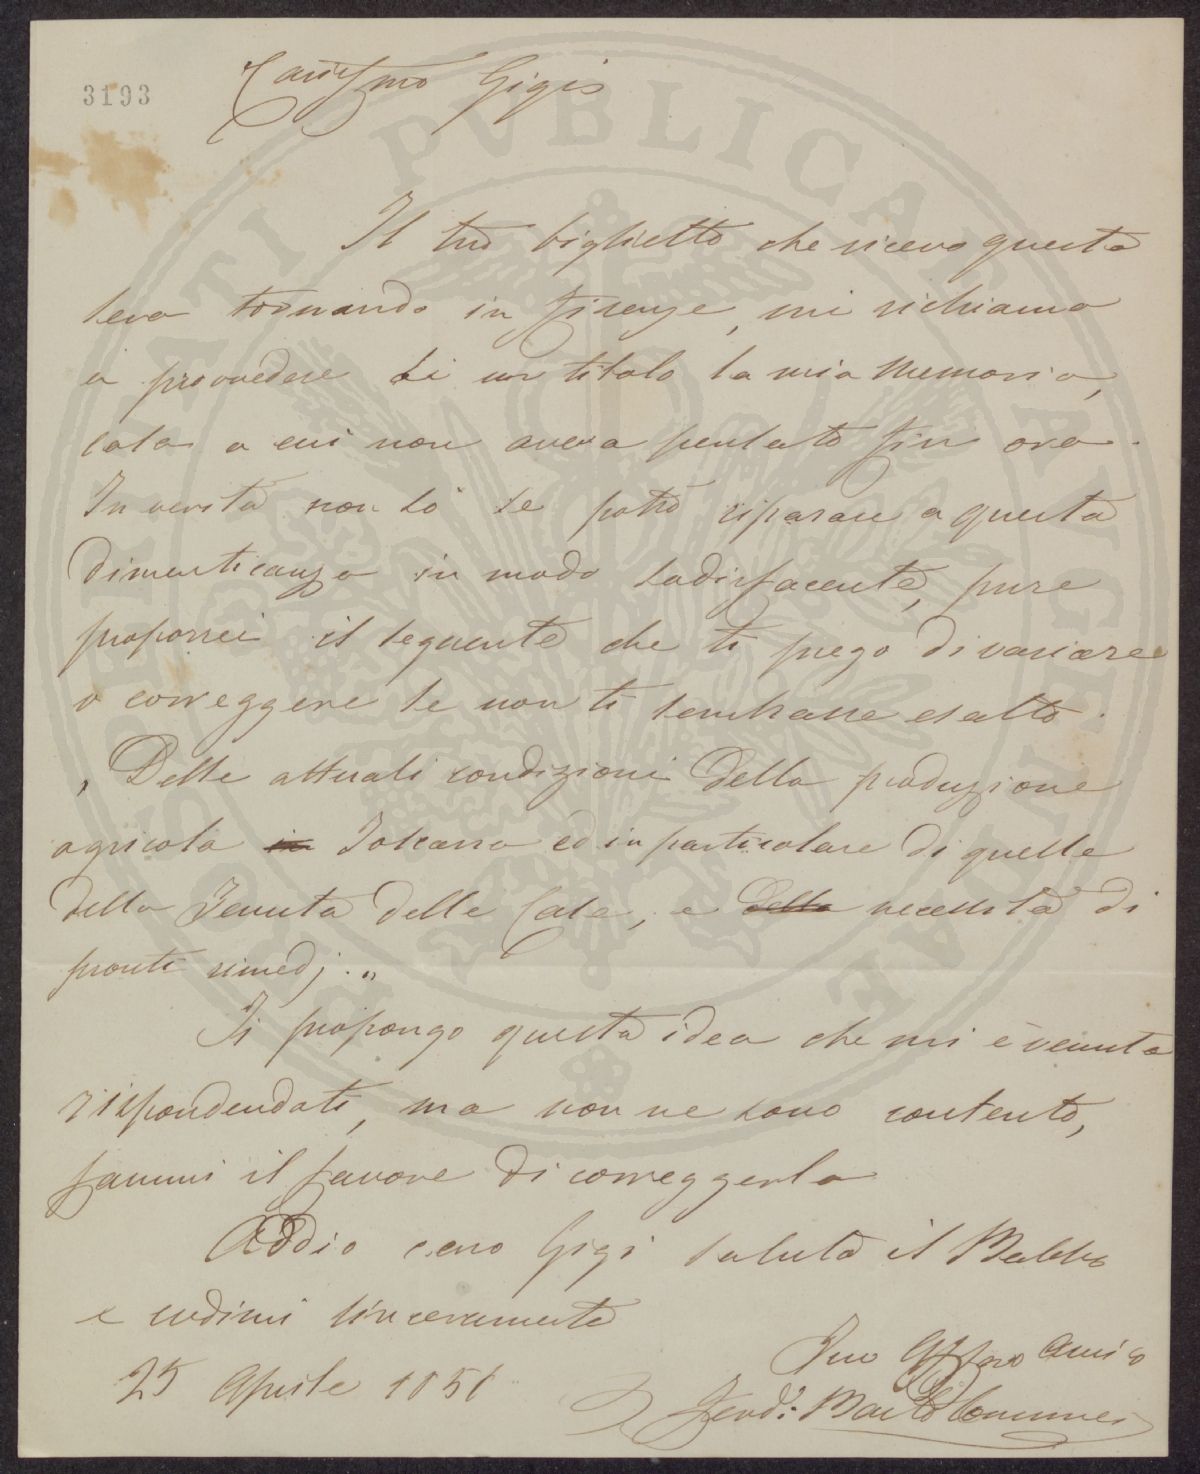 3193
Cariss.mo Gigi
Il tuo biglietto che ricevo questa
sera tornando in Firenze, mi richiama
a provvedere di un titolo la mia Memoria,
cosa a cui non aveva pensato fin ora.
In verità non sò se potrò riparare a questa
dimenticanza in modo sodisfacente, pure
proporrei il seguente che ti prego di variare
o correggere se non ti sembrasse esatto.
„ Delle attuali condizioni della produzione
agricola in Toscana ed in particolare di quelle
della Tenuta delle Case, e della necessità di
pronti rimedj. „
Ti propongo questa idea che mi è venuta
rispondendoti, ma non ne sono contento,
fammi il favore di correggerla
Addio caro Gigi saluta il Babbo
e credimi sinceramente
25 Aprile 1856
Tuo Aff.mo Amico
Ferd.o Bartolommei
RES PVBLICA FLORENTINA